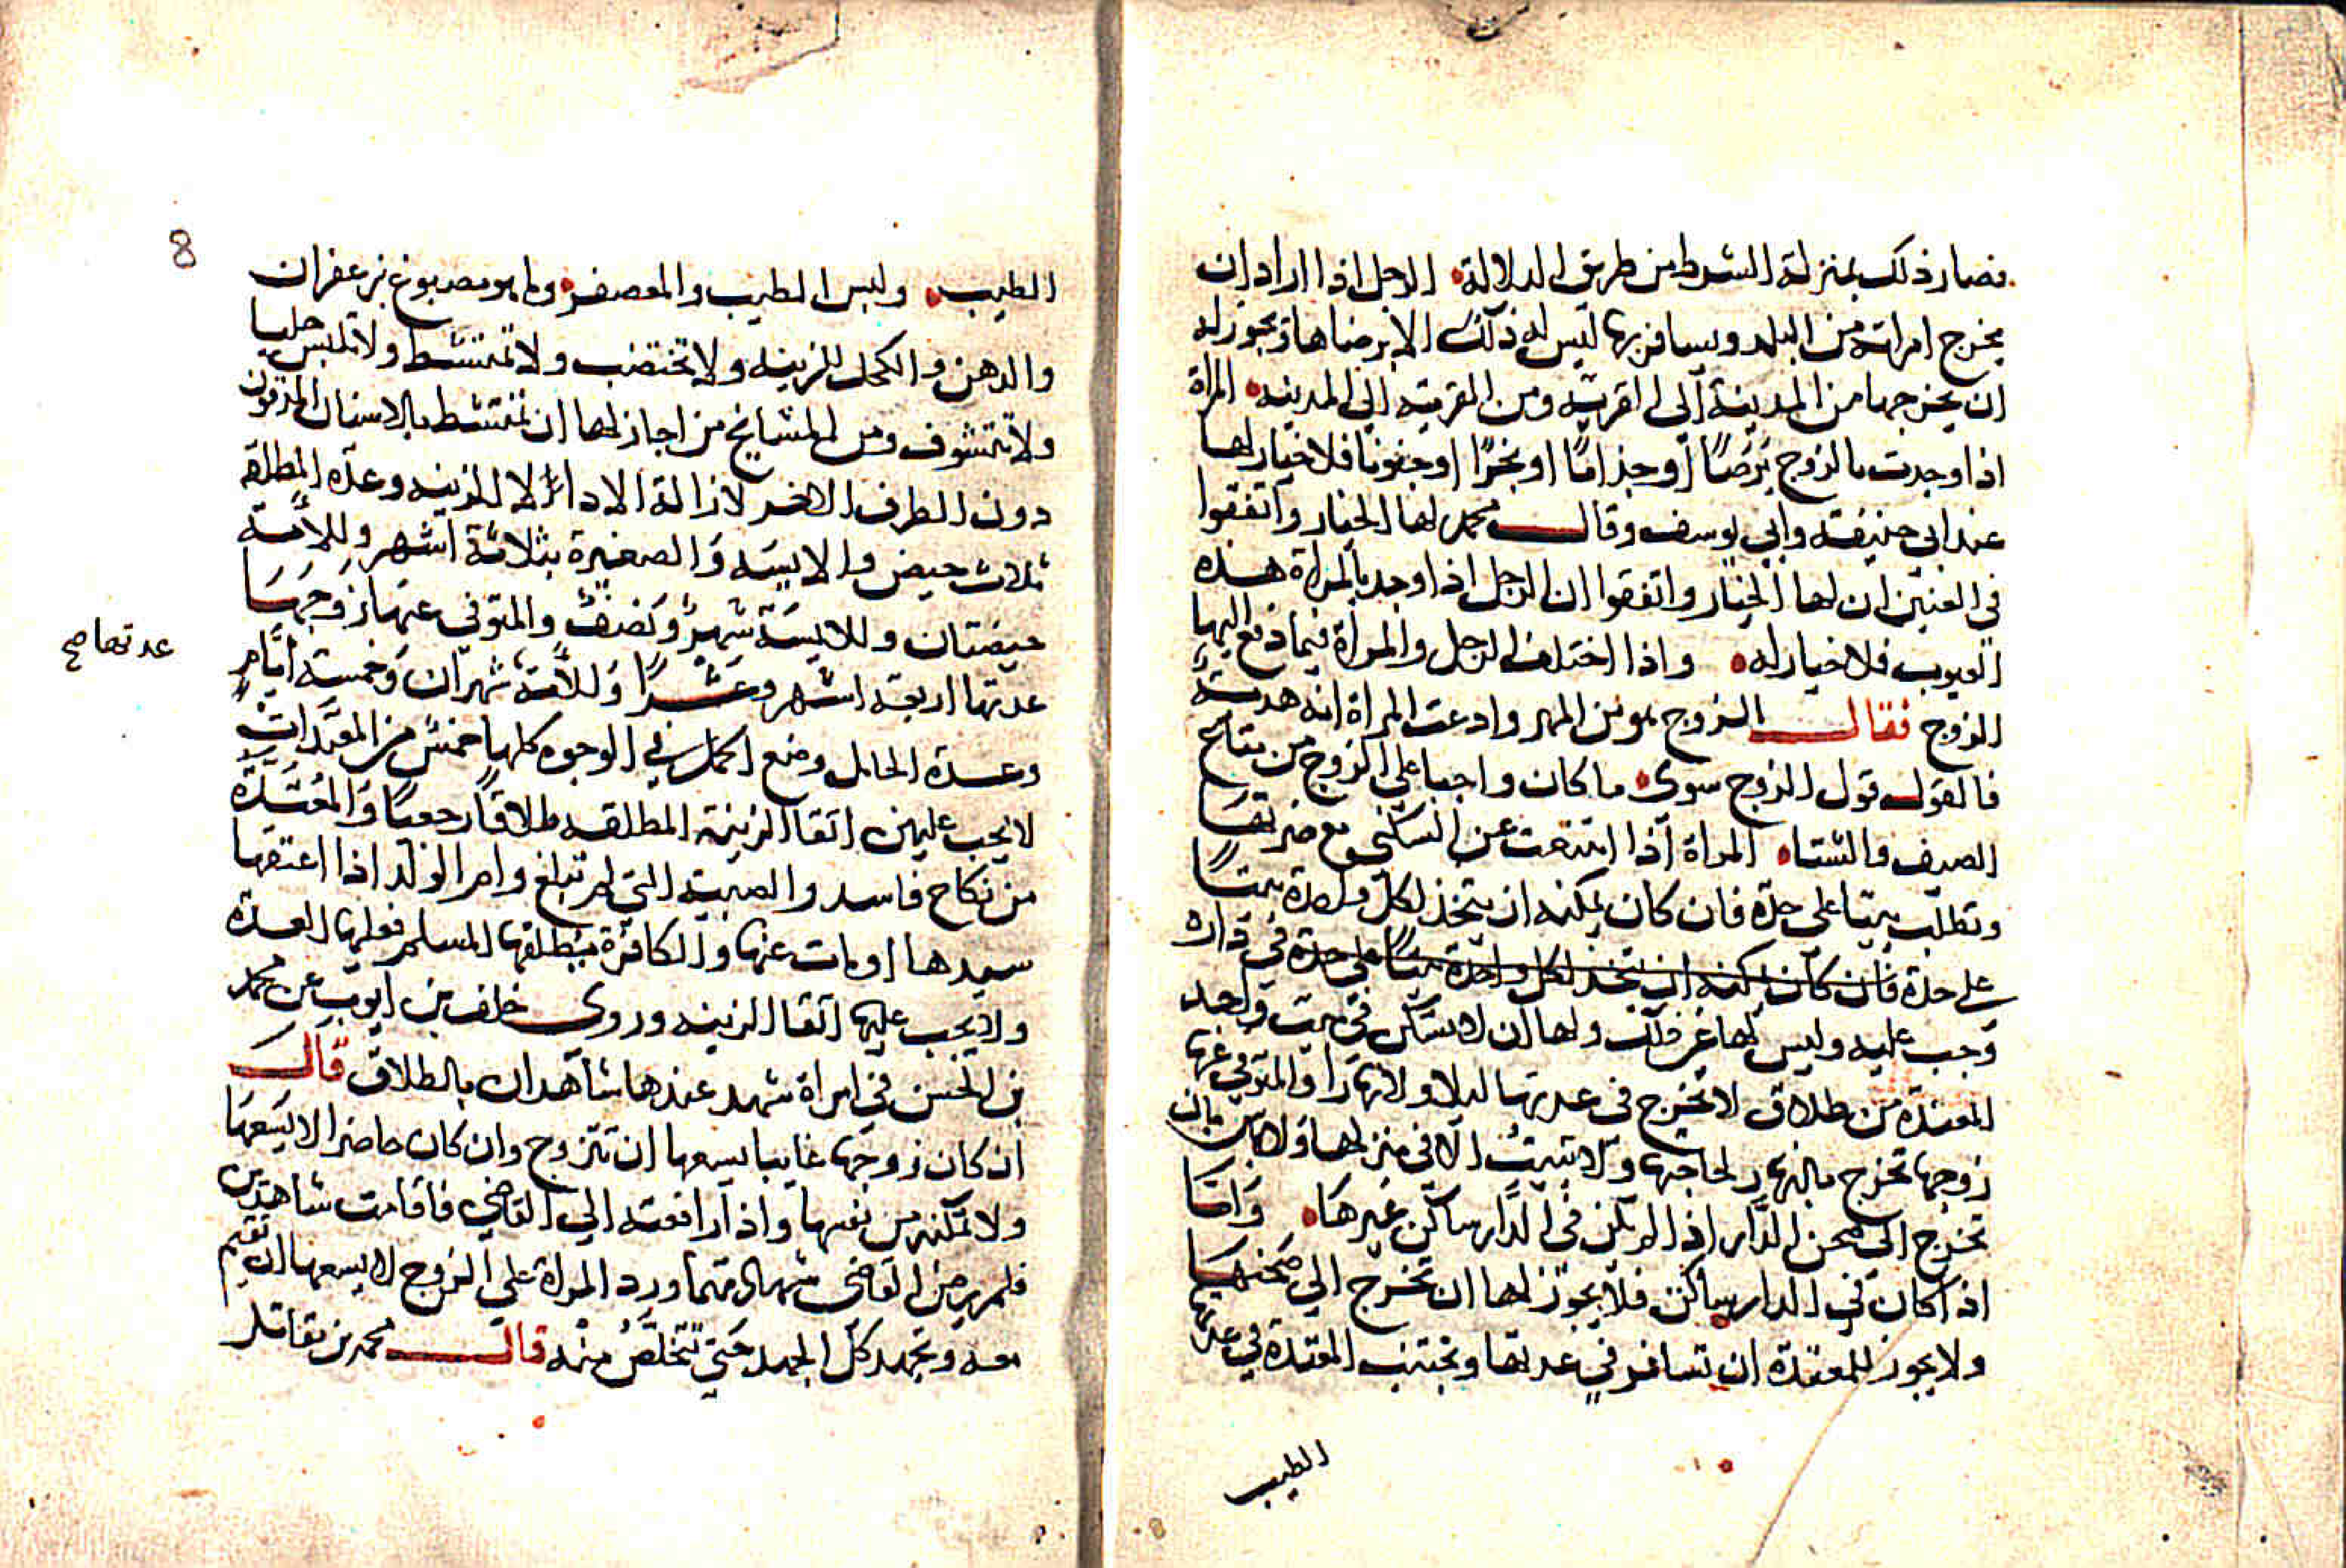 فصار ذلك بمنزلة الشرط من طريق الدلالة الرجل اذا اراد ان
يخرج امراته من البلد ويسافر بها ليس له ذلك الا برضاها ويجوز له
ان يخرجها من المدينة الى القرية ومن القرية الي المدينه المراة
اذا وجدت بالزوج برصًا او جذامًا او بخرًا او جنونا فلا خيار لها
عند ابي حنيفة وابي يوسف وقال محمد لها الخيار واتفقوا
في العنين ان لها الخيار واتفقوا ان الرجل اذا وجد بالمراة هذه
العيوب فلا خيار له واذا اختلف الرجل والمراة فيما دفع اليها
الزوج فقال الزوج هو من المهر وادعت المراة انه هدية
فالقول قول الزوج سوى ما كان واجبا علي الزوج من متاع
الصيف والشتاء المراة اذا امتنعت عن السكنى مع ضرتها
وتطلب بيتا على حدة فان كان يمكنه ان يتخذ لكل واحدة بيتًا
على حدة فان كان يمكنه ان يتخذ لكل واحدة بيتًا على حدة في داره
وجب عليه وليس لها غير ذلك ولها ان لا تسكن في بيت واحد
المعتدة من طلاق لا تخرج في عدتها ليلا ولا نهارا والمتوفى عنها
زوجها تخرج بالنهار لحاجتها ولا تبيت الا في منزلها ولا باس بان
تخرج الي صحن الدار اذا لم يكن في الدار ساكن غيرها واما
اذا كان في الدار ساكن فلا يجوز لها ان تخرج الي صحنها
ولا يجوز للمعتدة ان تسافر في عدتها وتجتنب المعتدة في عدتها
الطيب
8
الطيب ولبس الطيب والمعصفر وما هو مصبوغ بزعفران
والدهن والكحل للزينه ولا تختضب ولا تمتشط ولا تلبس حليا
ولا تتشوف ومن المشايخ من اجاز لها ان تمتشط بالاسنان
دون الطرف الاخر لازالة الاذاء لا للزينه وعدة المطلقة
ثلاث حيض والايسه والصغيرة بثلاثة اشهر وللأمة
حيضتان وللايسة شهر ونصف والمتوفي عنها زوجها
عدتها صح
عدتها اربعة اشهر وعشرًا وللأمة شهران وخمسة ايام
وعدة الحامل وضع الحمل في الوجوه كلها خمس من المعتدات
لا يجب عليهن اتقا الزينة المطلقه طلاقًا رجعيًا والمعتدة
من نكاح فاسد والصبية التي لم تبلغ وام الولد اذا اعتقها
سيدها او مات عنها والكافرة يطلقها المسلم فعليها العدة
ولا يجب عليها اتقا الزينه وروى خلف بن ايوب عن محمد
بن الحسن في امراة شهد عندها شاهدان بالطلاق قال
ان كان زوجها غايبا يسعها ان تتزوج وان كان حاضرا لا يسعها
ولا تمكنه من نفسها واذا رافعته الي القاضي فاقامت شاهدين
فلم يرض القاضي شهادتهما ورد المراة علي الزوج لا يسعها ان تقيم
معه وتجهد كل الجهد حتي تتخلص منه قال محمد بن مقاتل